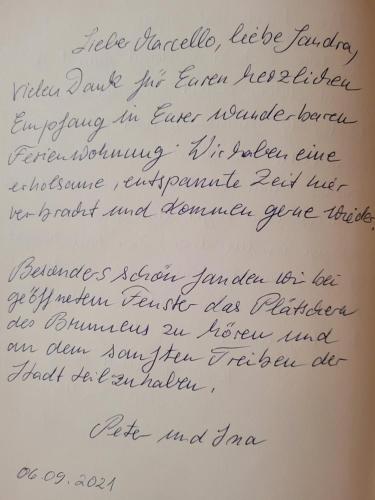 Lieber Marcello, liebe Sandra,
vielen Dank für Euren herzlichen
Empfang in Eurer wunderbaren
Ferienwohnung. Wir haben eine
erholsame, entspannte Zeit hier
verbracht und kommen gerne wieder.
Besonders schön fanden wir bei
geöffnetem Fenster das Plätschern
des Brunnens zu hören und
an dem sanften Treiben der
Stadt teilzuhaben.
Peter und Ina
06.09.2021